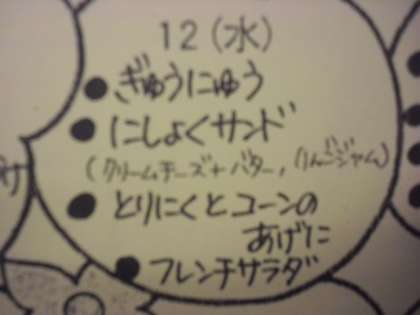 12(水)
●ぎゅうにゅう
●にしょくサンド
(クリームチーズ+バター,りんごジャム)
●とりにくとコーンの
あげに
●フレンチサラダ